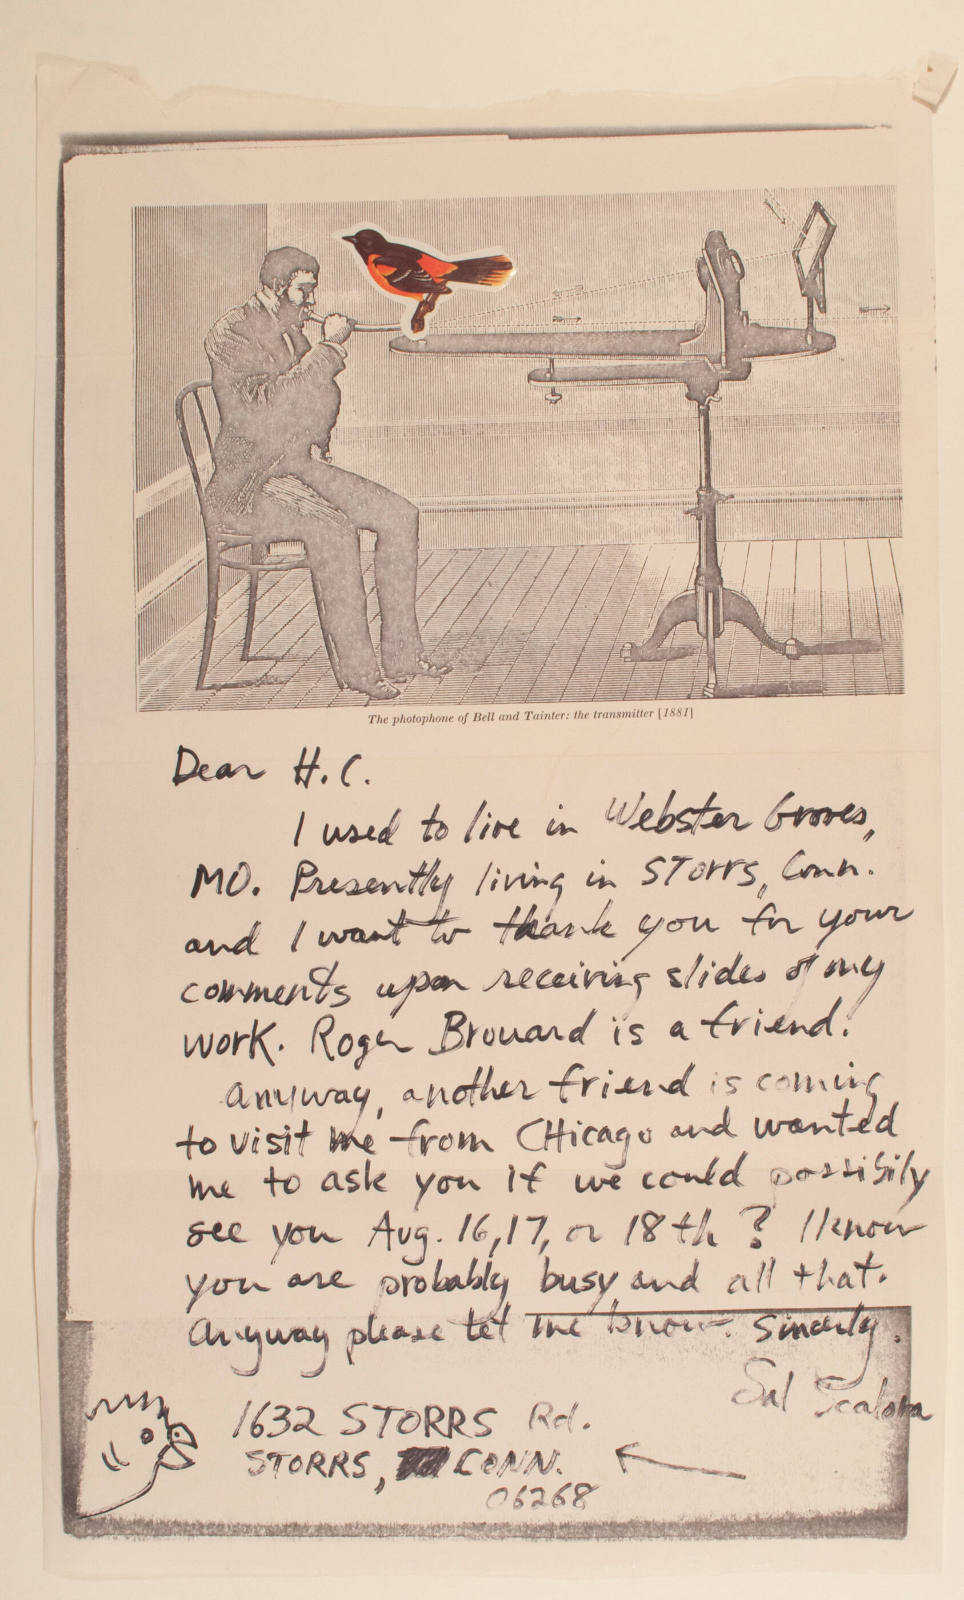 The photophone of Bell and Tainter: the transmitter [1881]
Dear H.C.
I used to live in Webster Groves,
MO. Presently living in STorrs, Conn.
and I want to thank you for your
comments upon receiving slides of my
work. Roger Brouard is a friend.
Anyway, another friend is coming
to visit me from CHicago and wanted
me to ask you if we could possibily
see you Aug. 16, 17, or 18th? I know
you are probably busy and all that.
Anyway please let me know. Sincerly.
Sal Scalora
1632 STORRS Rd.
STORRS, CONN.
06268